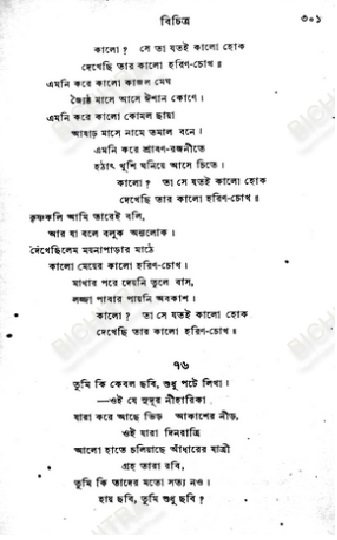 বিচিত্র ৩০১
কালো? সে তা যতই কালো হোক
দেখেছি তার কালো হরিণ-চোখ॥
এমনি করে কালো কাজল মেঘ
জ্যৈষ্ঠ মাসে আসে ঈশান কোণে।
এমনি করে কালো কোমল ছায়া
আষাঢ় মাসে নামে তমাল বনে।
এমনি করে শ্রাবণ-রজনীতে
হঠাৎ খুশি ঘনিয়ে আসে চিতে।
কালো? তা সে যতই কালো হোক
দেখেছি তার কালো হরিণ-চোখ॥
কৃষ্ণকলি আমি তারেই বলি,
আর যা বলে বলুক অন্যলোক।
দেখেছিলেম ময়নাপাড়ার মাঠে
কালো মেয়ের কালো হরিণ-চোখ।
মাথার পরে দেয়নি তুলে বাস,
লজ্জা পাবার পায়নি অবকাশ।
কালো? তা সে যতই কালো হোক
দেখেছি তার কালো হরিণ-চোখ॥
৭৬
তুমি কি কেবল ছবি, শুধু পটে লিখা।
—ওই যে সুদূর নীহারিকা
যারা করে আছে ভিড় আকাশের নীড়,
ওই যারা দিনরাত্রি
আলো হাতে চলিয়াছে আঁধারের যাত্রী
গ্রহ তারা রবি,
তুমি কি তাদের মতো সত্য নও।
হায় ছবি, তুমি শুধু ছবি?